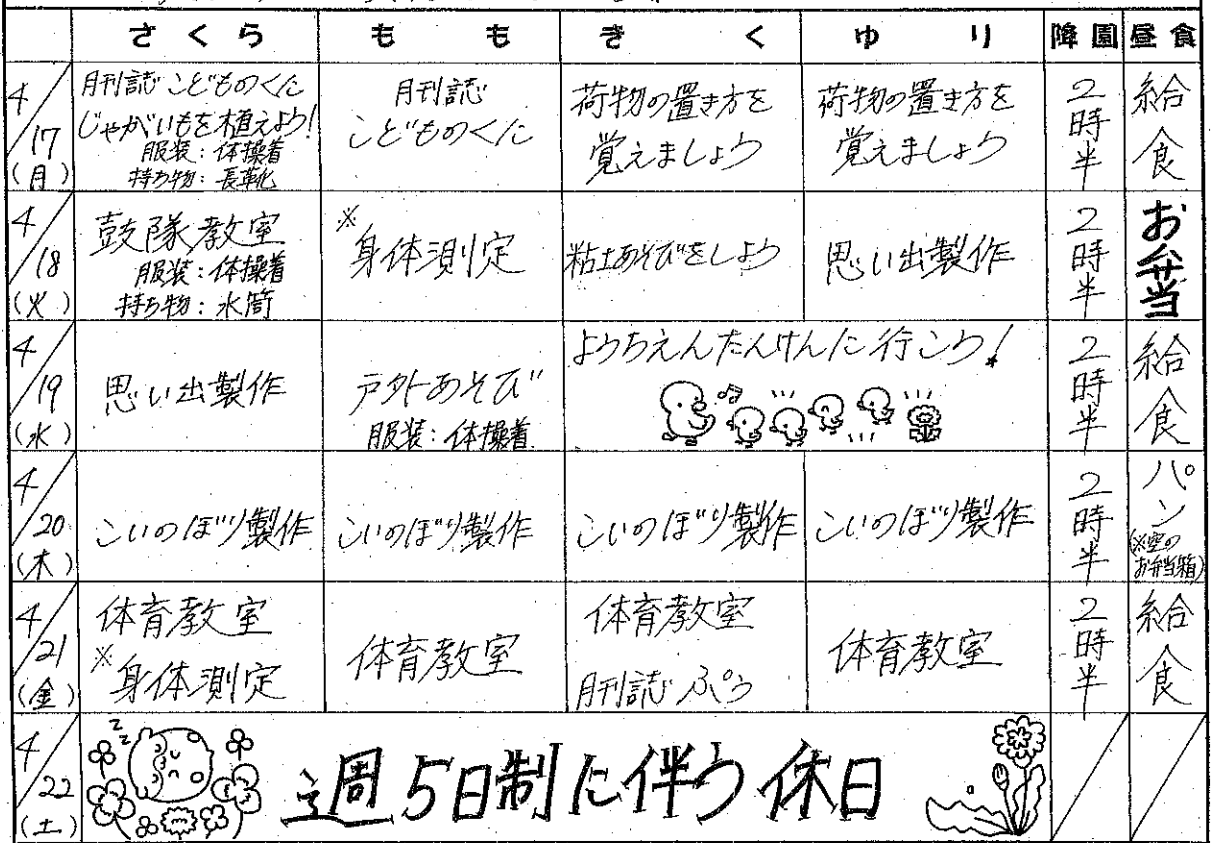 さくら もも きく ゆり 降園 昼食
4/17(月)
月刊誌 こどものくに
じゃがいもを植えよう!
服装:体操着
持ち物:長靴
月刊誌
こどものくに
荷物の置き方を
覚えましょう
荷物の置き方を
覚えましょう
2時半
給食
4/18(火)
鼓隊教室
服装:体操着
持ち物:水筒
※身体測定
粘土あそびをしよう
思い出製作
2時半
お弁当
4/19(水)
思い出製作
戸外あそび
服装:体操着
ようちえんたんけんに行こう!
2時半
給食
4/20(木)
こいのぼり製作
こいのぼり製作
こいのぼり製作
こいのぼり製作
2時半
パン
(※空の
お弁当箱)
4/21(金)
体育教室
※身体測定
体育教室
体育教室
月刊誌 ぷう
体育教室
2時半
給食
4/22(土)
zzz
週5日制に伴う休日